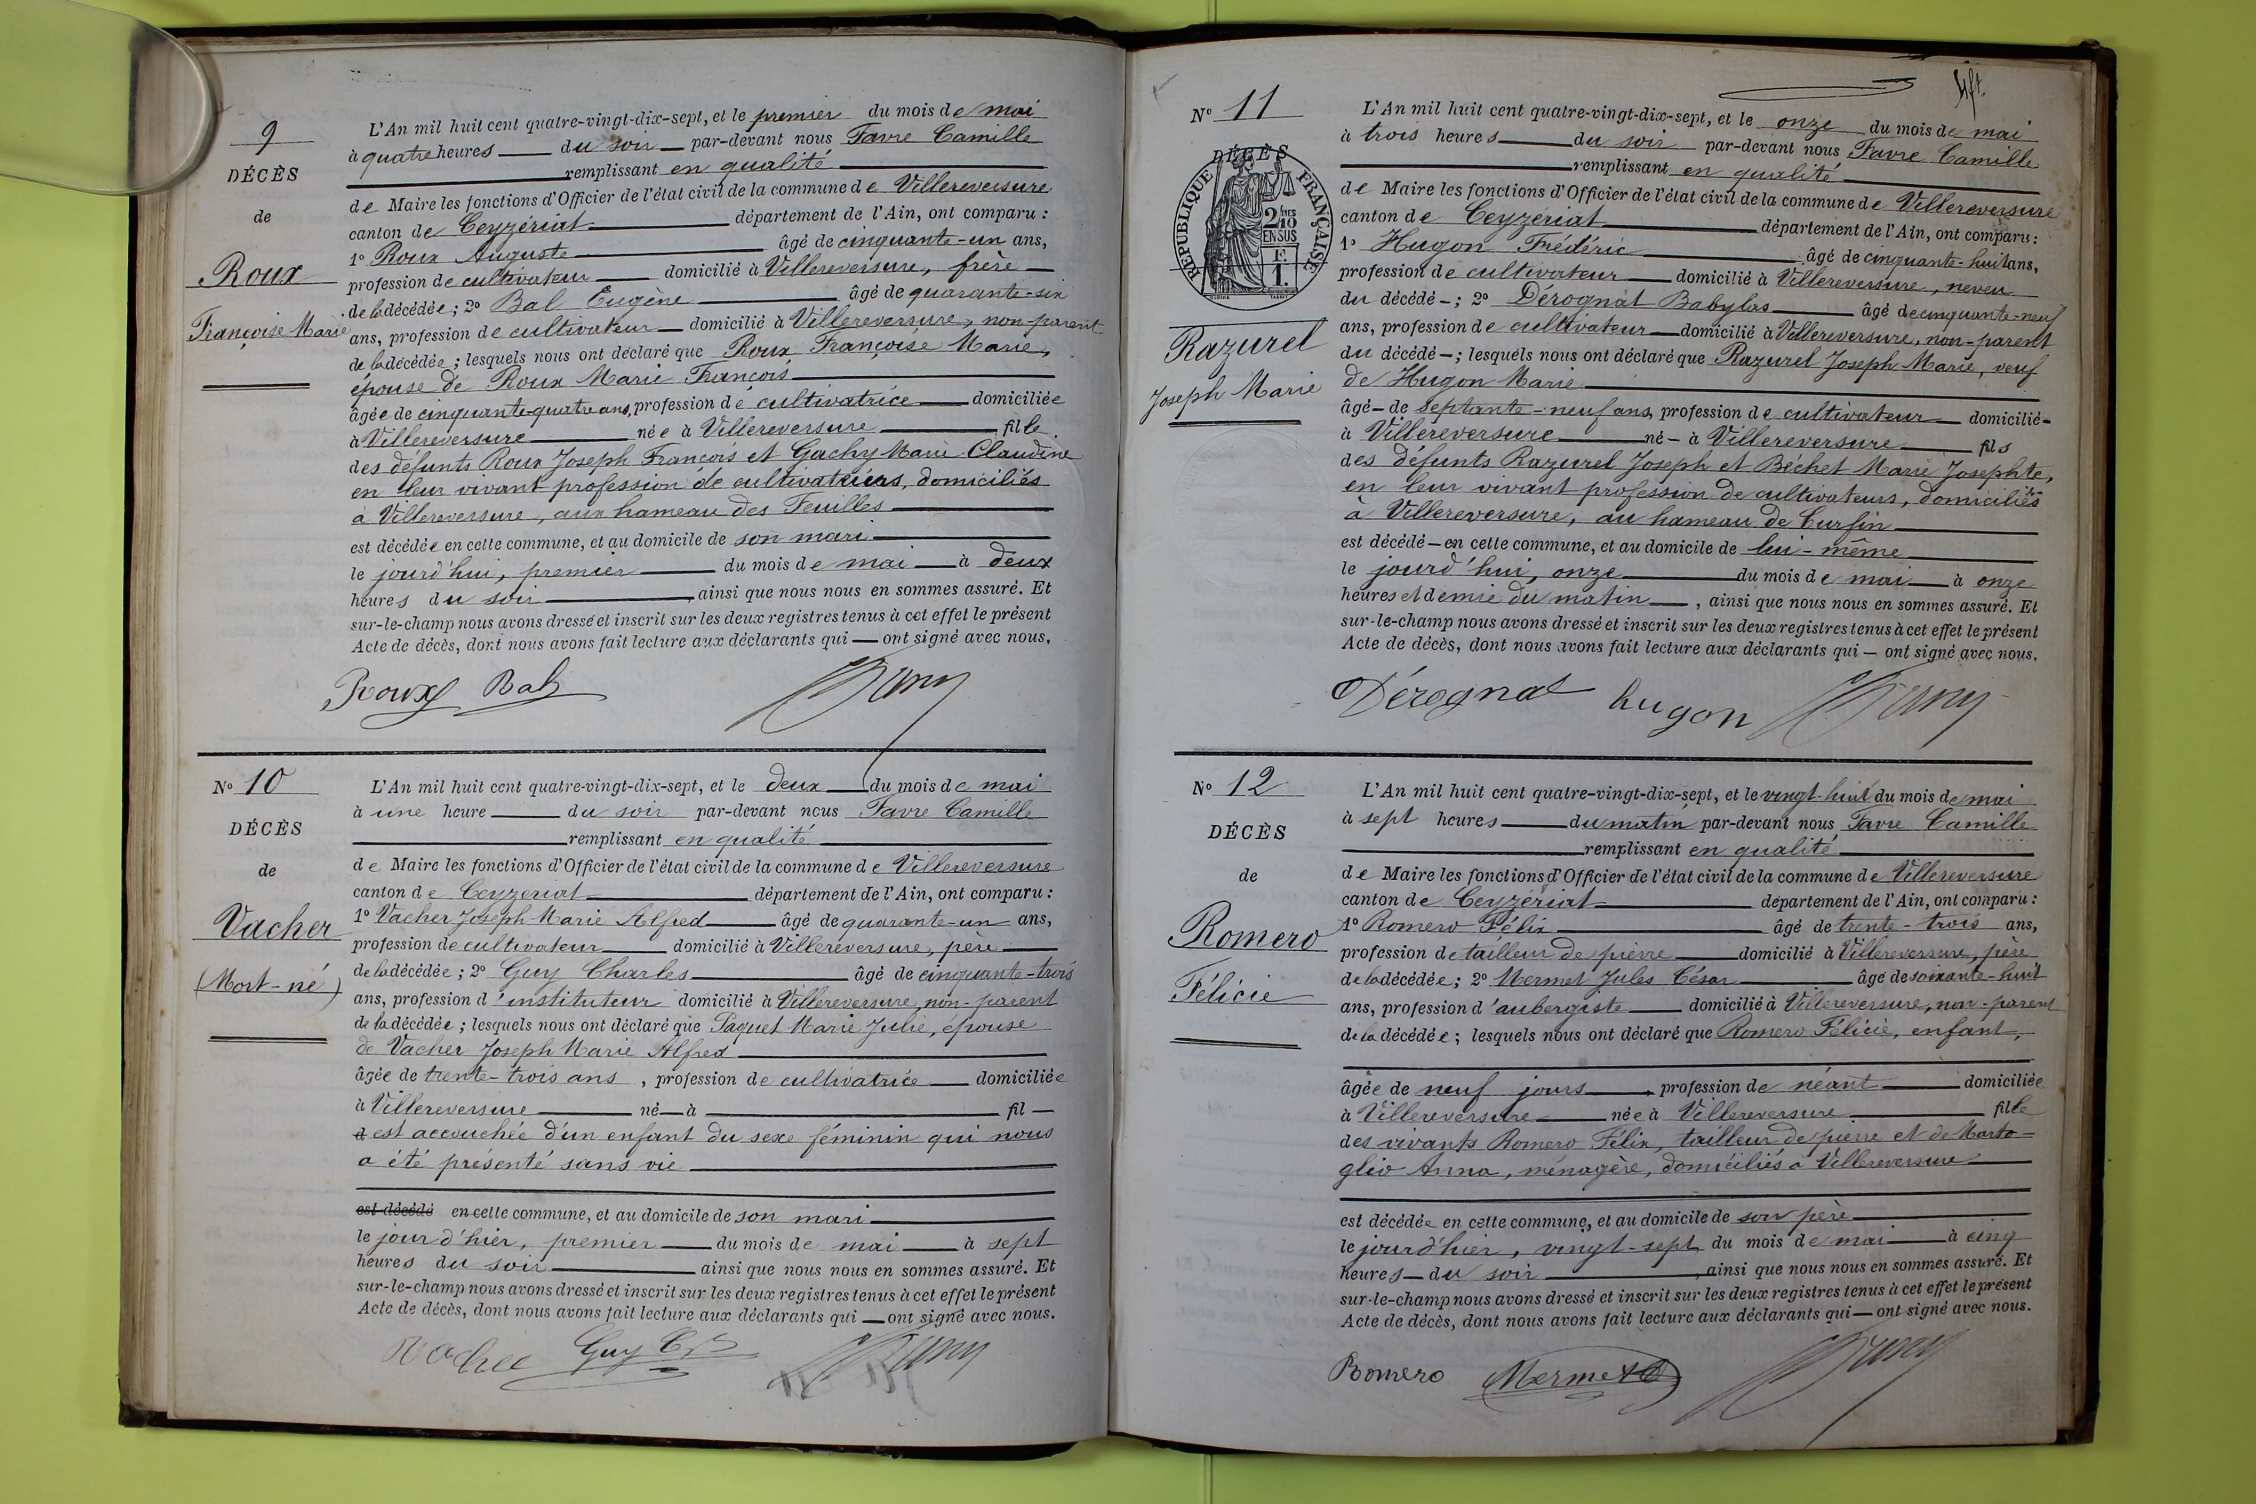 9
DÉCÈS
de
Roux
Françoise Marie
L'An mil huit cent quatre-vingt-dix-sept, et le premier du mois de mai
à quatre heures du soir par-devant nous Favre Camille
remplissant en qualité
de Maire les fonctions d'Officier de l'état civil de la commune de Villereversure
canton de Ceyzériat département de l'Ain, ont comparu :
1º Roux Auguste âgé de cinquante-un ans,
profession de cultivateur domicilié à Villereversure, frère
de la décédée ; 2º Bal Eugène âgé de quarante-six
ans, profession de cultivateur domicilié à Villereversure, non-parent
de la décédée ; lesquels nous ont déclaré que Roux Françoise Marie,
épouse de Roux Marie François
âgée de cinquante-quatre ans, profession de cultivatrice domiciliée
à Villereversure née à Villereversure fille
des défunts Roux Joseph François et Gachy Marie Claudine
en leur vivant profession de cultivateurs, domiciliés
à Villereversure, aux hameau des Feuilles
est décédée en cette commune, et au domicile de son mari
le jourd'hui, premier du mois de mai à deux
heures du soir, ainsi que nous nous en sommes assuré. Et
sur-le-champ nous avons dressé et inscrit sur les deux registres tenus à cet effet le présent
Acte de décès, dont nous avons fait lecture aux déclarants qui — ont signé avec nous.
Roux Bal
Nº 10
DÉCÈS
de
Vacher
(Mort-né)
L'An mil huit cent quatre-vingt-dix-sept, et le deux du mois de mai
à une heure du soir par-devant nous Favre Camille
remplissant en qualité
de Maire les fonctions d'Officier de l'état civil de la commune de Villereversure
canton de Ceyzeriat département de l'Ain, ont comparu :
1º Vacher Joseph Marie Alfred âgé de quarante-un ans,
profession de cultivateur domicilié à Villereversure, père
de la décédée ; 2º Guy Charles âgé de cinquante-trois
ans, profession d'instituteur domicilié à Villereversure, non-parent
de la décédée ; lesquels nous ont déclaré que Paquet Marie Julie, épouse
de Vacher Joseph Marie Alfred
âgée de trente-trois ans, profession de cultivatrice domiciliée
à Villereversure né — à fil —
est accouchée d'un enfant du sexe féminin qui nous
a été présenté sans vie
est décédé en cette commune, et au domicile de son mari
le jour d'hier, premier du mois de mai à sept
heures du soir ainsi que nous nous en sommes assuré. Et
sur-le-champ nous avons dressé et inscrit sur les deux registres tenus à cet effet le présent
Acte de décès, dont nous avons fait lecture aux déclarants qui — ont signé avec nous.
Vacher Guy Ch
Nº 11
DÉCÈS
RÉPUBLIQUE FRANÇAISE
2/10
EN SUS
F.
1.
Razurel
Joseph Marie
L'An mil huit cent quatre-vingt-dix-sept, et le onze du mois de mai
à trois heures du soir par-devant nous Favre Camille
remplissant en qualité
de Maire les fonctions d'Officier de l'état civil de la commune de Villereversure
canton de Ceyzeriat département de l'Ain, ont comparu :
1º Hugon Frédéric âgé de cinquante-huit ans,
profession de cultivateur domicilié à Villereversure, neveu
du décédé — ; 2º Dérognat Babylas âgé de cinquante-neuf
ans, profession de cultivateur domicilié à Villereversure, non-parent
du décédé — ; lesquels nous ont déclaré que Razurel Joseph Marie, veuf
de Hugon Marie
âgé — de septante-neuf ans, profession de cultivateur domicilié —
à Villereversure né — à Villereversure fils
des défunts Razurel Joseph et Béchet Marie Josephte,
en leur vivant profession de cultivateurs, domiciliés
à Villereversure, au hameau de Curfin
est décédé — en cette commune, et au domicile de lui-même
le jourd'hui, onze du mois de mai à onze
heures et demie du matin, ainsi que nous nous en sommes assuré. Et
sur-le-champ nous avons dressé et inscrit sur les deux registres tenus à cet effet le présent
Acte de décès, dont nous avons fait lecture aux déclarants qui — ont signé avec nous.
Dérognat hugon
Nº 12
DÉCÈS
de
Romero
Félicie
L'An mil huit cent quatre-vingt-dix-sept, et le vingt-huit du mois de mai
à sept heures du matin par-devant nous Favre Camille
remplissant en qualité
de Maire les fonctions d'Officier de l'état civil de la commune de Villereversure
canton de Ceyzériat département de l'Ain, ont comparu :
1º Romero Félix âgé de trente-trois ans,
profession de tailleur de pierre domicilié à Villereversure, père
de la décédée ; 2º Mermet Jules César âgé de soixante-huit
ans, profession d'aubergiste domicilié à Villereversure, non-parent
de la décédée ; lesquels nous ont déclaré que Romero Félicie, enfant,
âgée de neuf jours, profession de néant domiciliée
à Villereversure née à Villereversure fille
des vivants Romero Félix, tailleur de pierre et de Marto-
glio Anna, ménagère, domiciliés à Villereversure
est décédée en cette commune, et au domicile de son père
le jour d'hier, vingt-sept du mois de mai à cinq
heures — du soir, ainsi que nous nous en sommes assuré. Et
sur-le-champ nous avons dressé et inscrit sur les deux registres tenus à cet effet le présent
Acte de décès, dont nous avons fait lecture aux déclarants qui — ont signé avec nous.
Romero Mermet